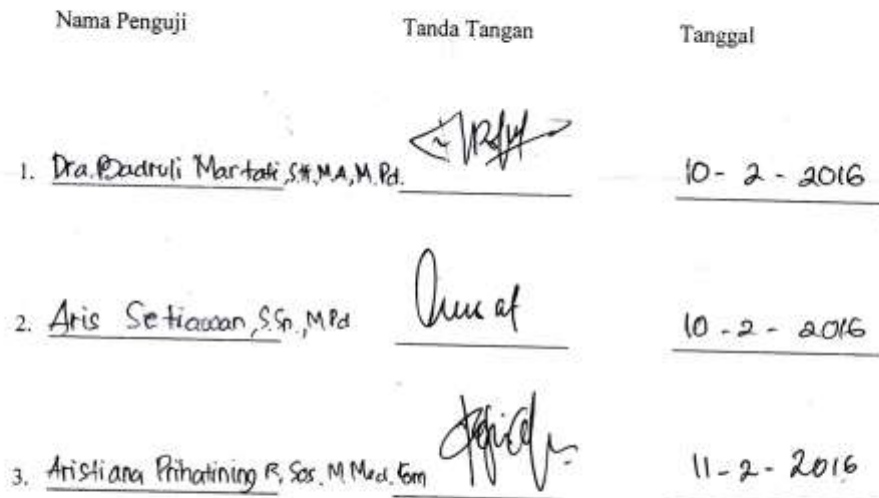 Nama Penguji Tanda Tangan Tanggal
1. Dra. Badruli Martati, SH, M.A, M.Pd. 10 - 2 - 2016
2. Aris Setiawan, S.Sn., M.Pd 10 - 2 - 2016
3. Aristiana Prihatining R, Sos. M.Med.Kom 11 - 2 - 2016